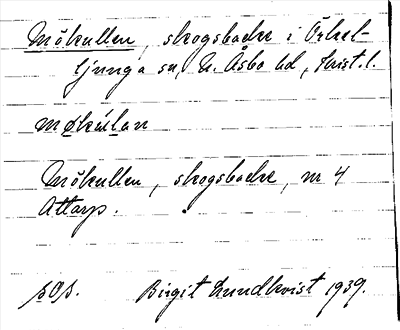 Mökullen, skogsbacke i Örkel-
ljunga sn, N. Åsbo hd, Krist. l.
møkulan
Mökullen, skogsbacke, nr 4
Attarp.
sOs. Birgit Lundkvist 1939.